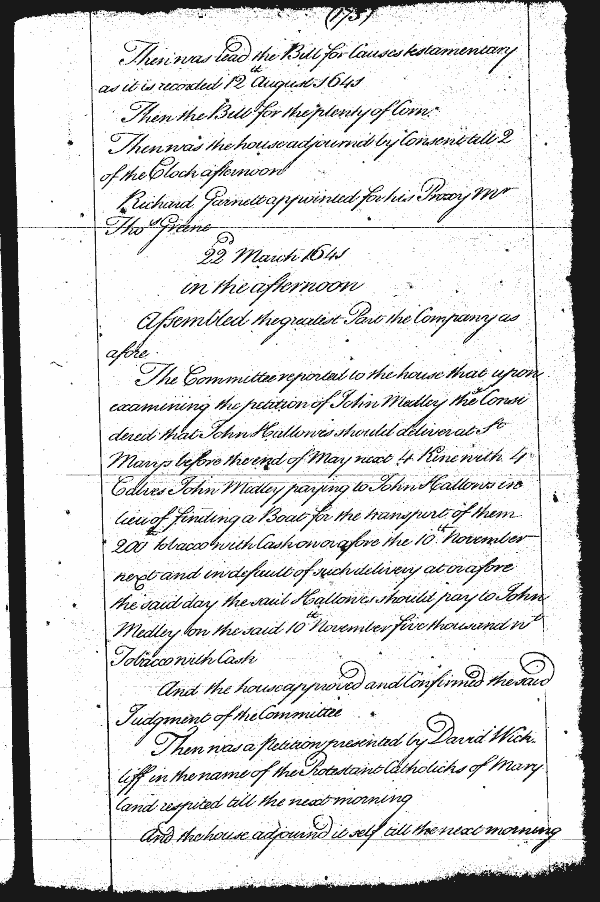 (173)
Then was read the Bill for Causes testamentary
as it is recorded 12th August 1641
Then the Bill for the plenty of Corn.
Then was the house adjourned by Consent till 2
of the Clock afternoon
Richard Garnett appointed for his Proxy Mr
Thos Greene
22d March 1641
in the afternoon
Assembled the greatest Part the Company as
afore
The Committee reported to the house that upon
examining the petition of John Medley they Consi
dered that John Hallowes should deliver at St
Marys before the end of May next 4 Kine with 4
Calves John Medley paying to John Hallows in
lieu of finding a Boat for the transport of them
200 tobacco with Cash on or afore the 10th November
next and in default of such delivery at or afore
the said day the said Hallowes should pay to John
Medley on the said 10th November five thousand wt
Tobacco with Cash
And the house approved and Confirmed the said
Judgment of the Committee
Then was a Petition presented by David Wick-
liff in the name of the Protestant Catholicks of Mary
land respited till the next morning
And the house adjournd it self till the next morning